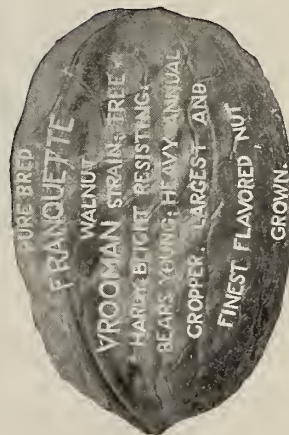 PURE BRED
FRANQUETTE
WALNUT
VROOMAN STRAIN, TREE
HARDY, BLIGHT RESISTING.
BEARS YOUNG; HEAVY ANNUAL
CROPPER. LARGEST AND
FINEST FLAVORED NUT
GROWN.